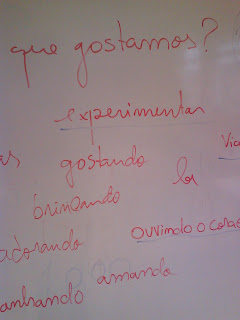 que gostamos?
experimentar
as gostando
brincando
adorando ouvindo o coraç
amando
anhando